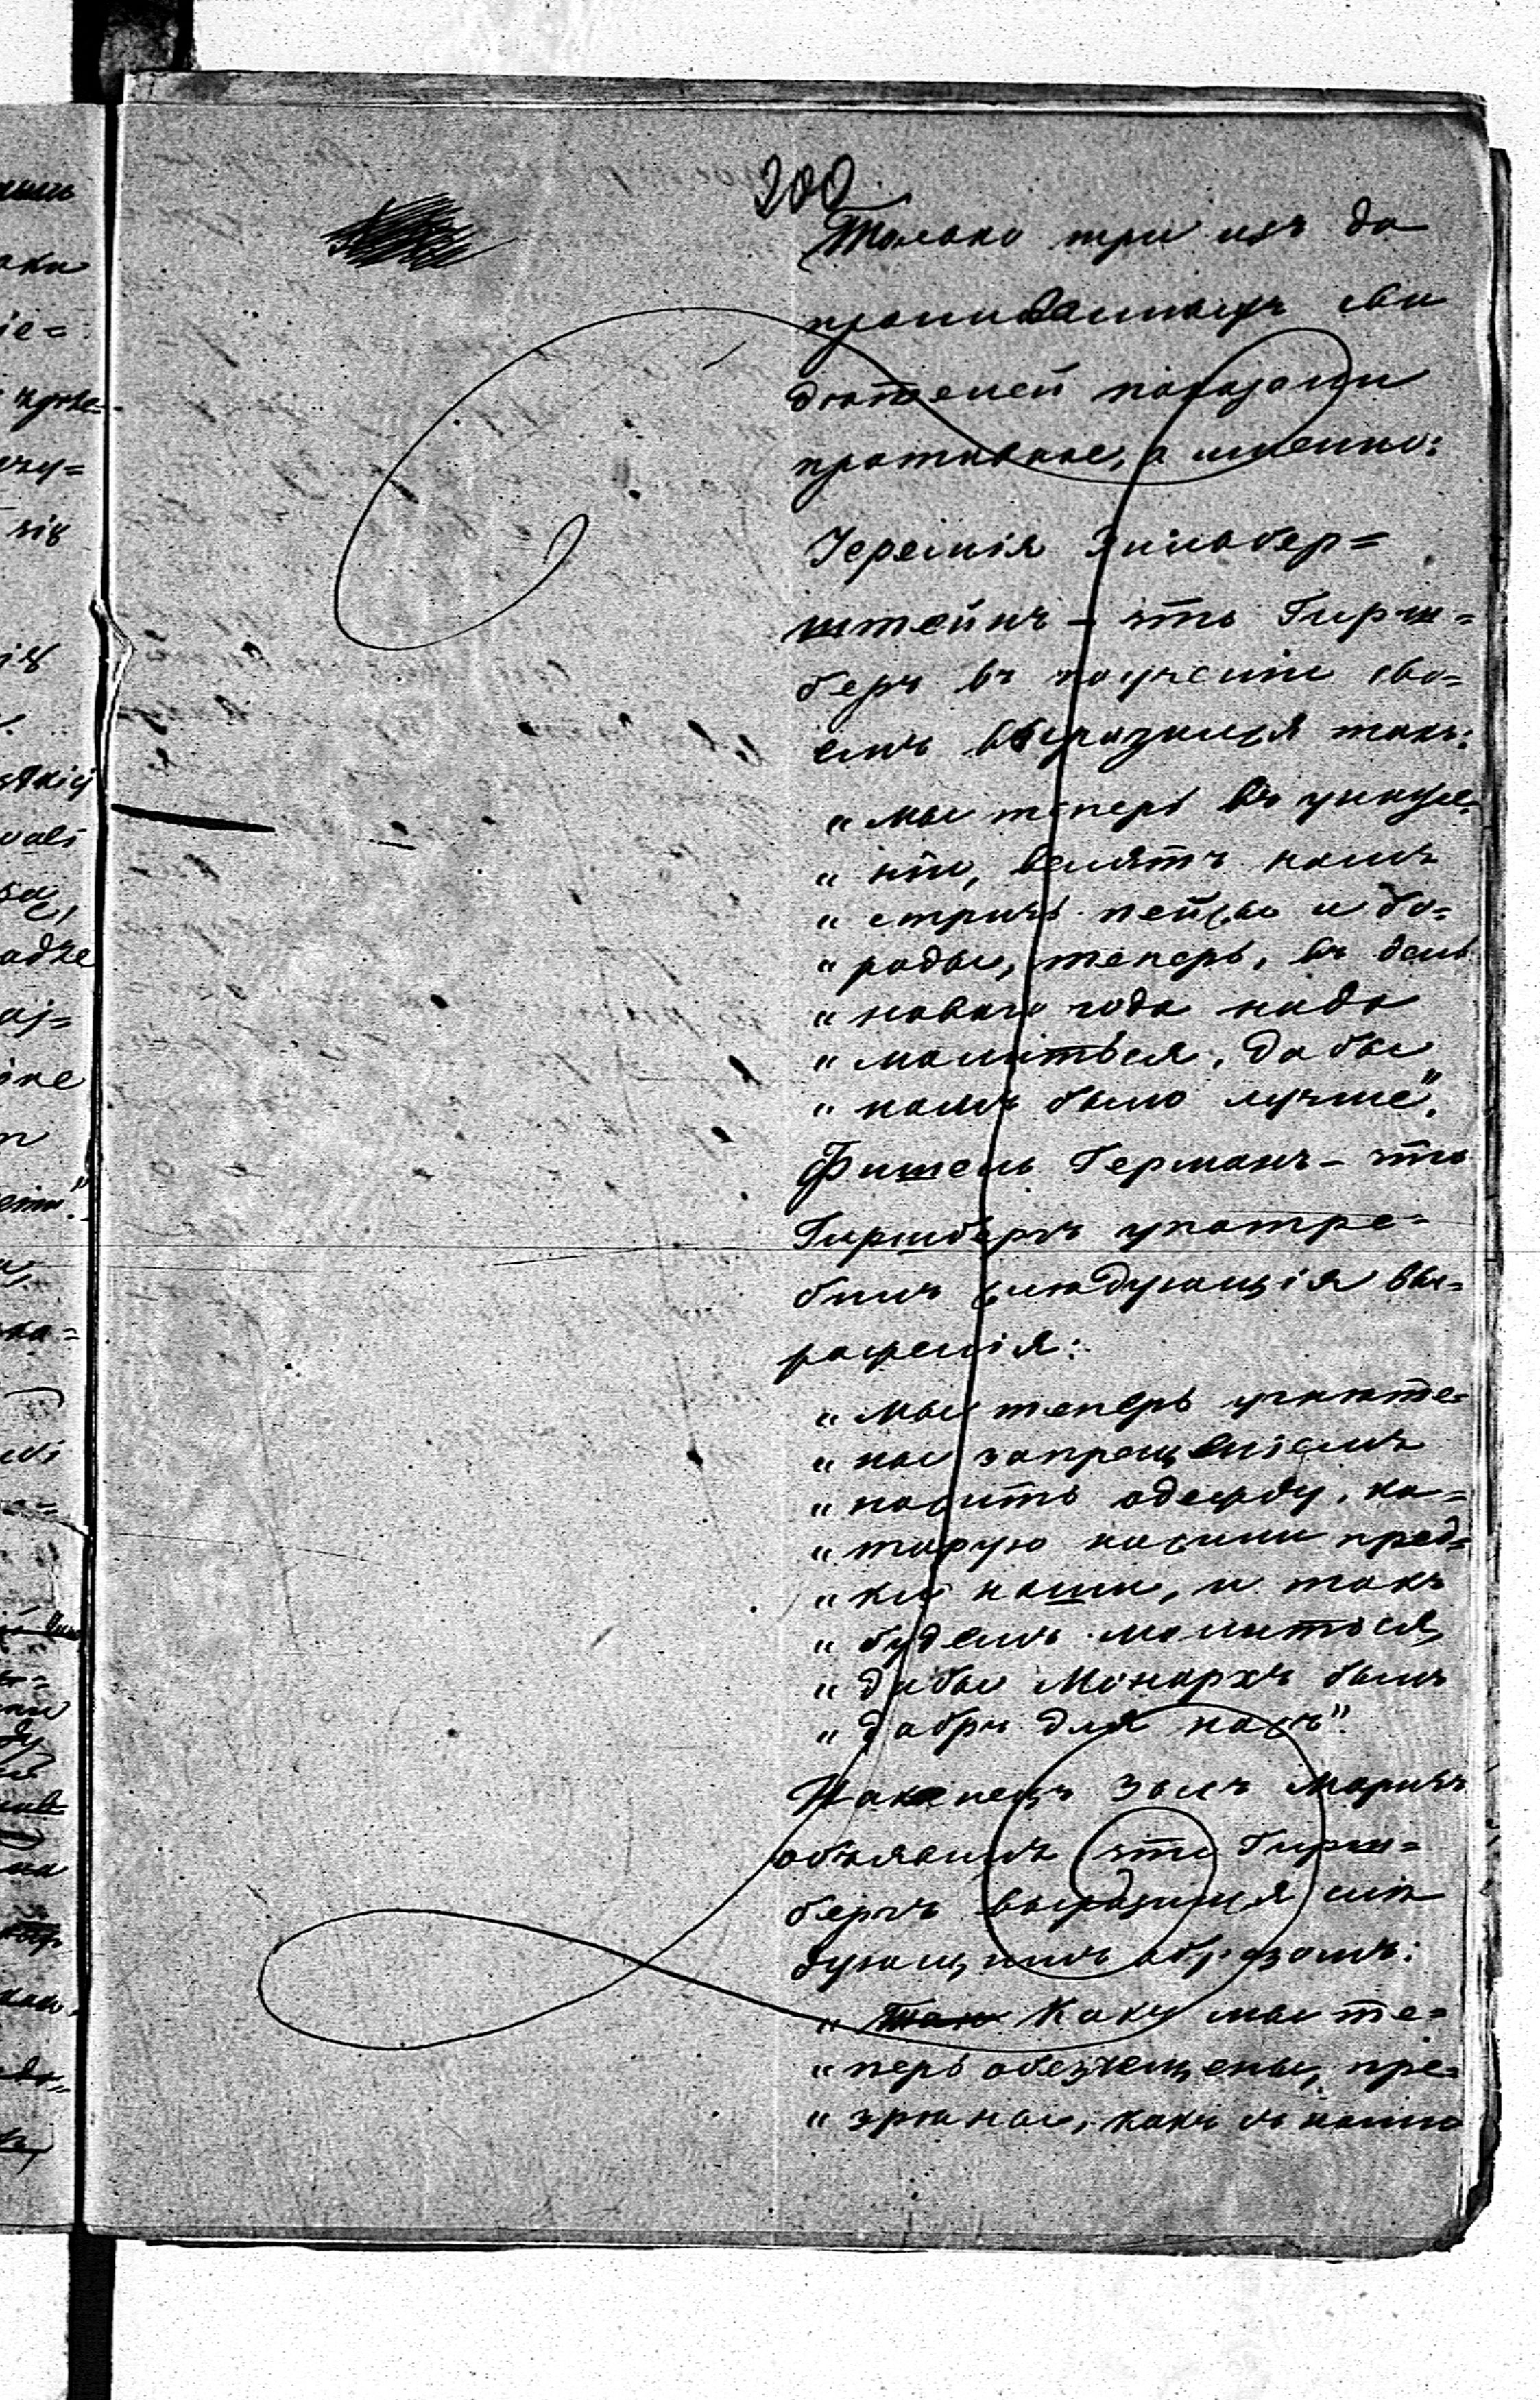 200
Только три изъ до
прошенныхъ сви
дѣтелей показали
противное, а именно:
Іеремія Зильбер=
штейнъ – что Гирш=
бергъ въ поученіи сво=
емъ выразился такъ:
„ мы теперь въ униже=
„ ніи, велятъ намъ
„ стричь пейсы и бо=
„ роды, теперь, въ день
„ новаго года надо
„ молиться, да бы
„ намъ было лучше".
Фишель Германъ – что
Гиршбергъ употре=
билъ слѣдующія вы=
раженія:
„ мы теперь угнѣте=
„ ны запрещеніемъ
„ носить одежду, ко=
„ торую носили пред=
„ ки наши, и такъ
„ будемъ молиться,
„ дабы Монархъ былъ
„ добръ для насъ".
Наконецъ
объявилъ что Гирш=
бергъ выразился слѣ
дующимъ образомъ:
„ Такъ Какъ мы те=
„ перь обезчещены, пре=
„ зрѣны, какъ